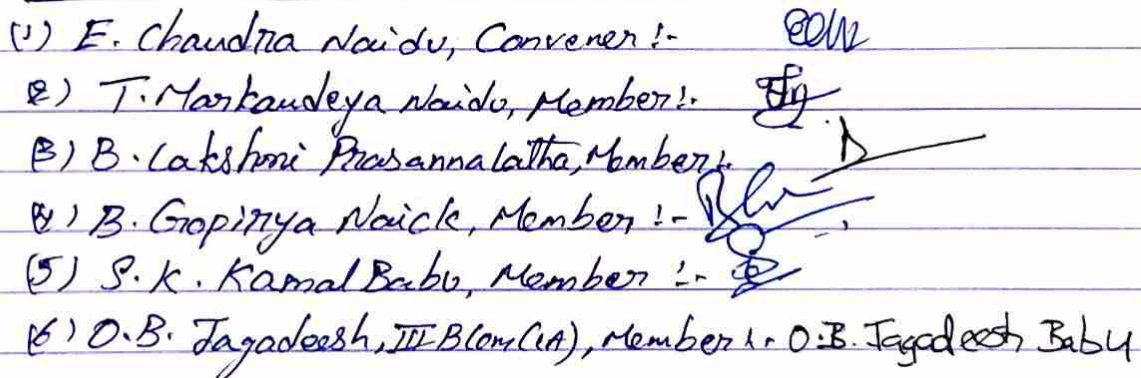 (1) E. Chandra Naidu, Convener :-
(2) T. Markandeya Naidu, Member :-
(3) B. Lakshmi Prasannalatha, Member :-
(4) B. Gopinya Naick, Member :-
(5) S. K. Kamal Babu, Member :-
(6) O.B. Jagadeesh, III B Com (CA), Member :- O.B. Jagadeesh Babu